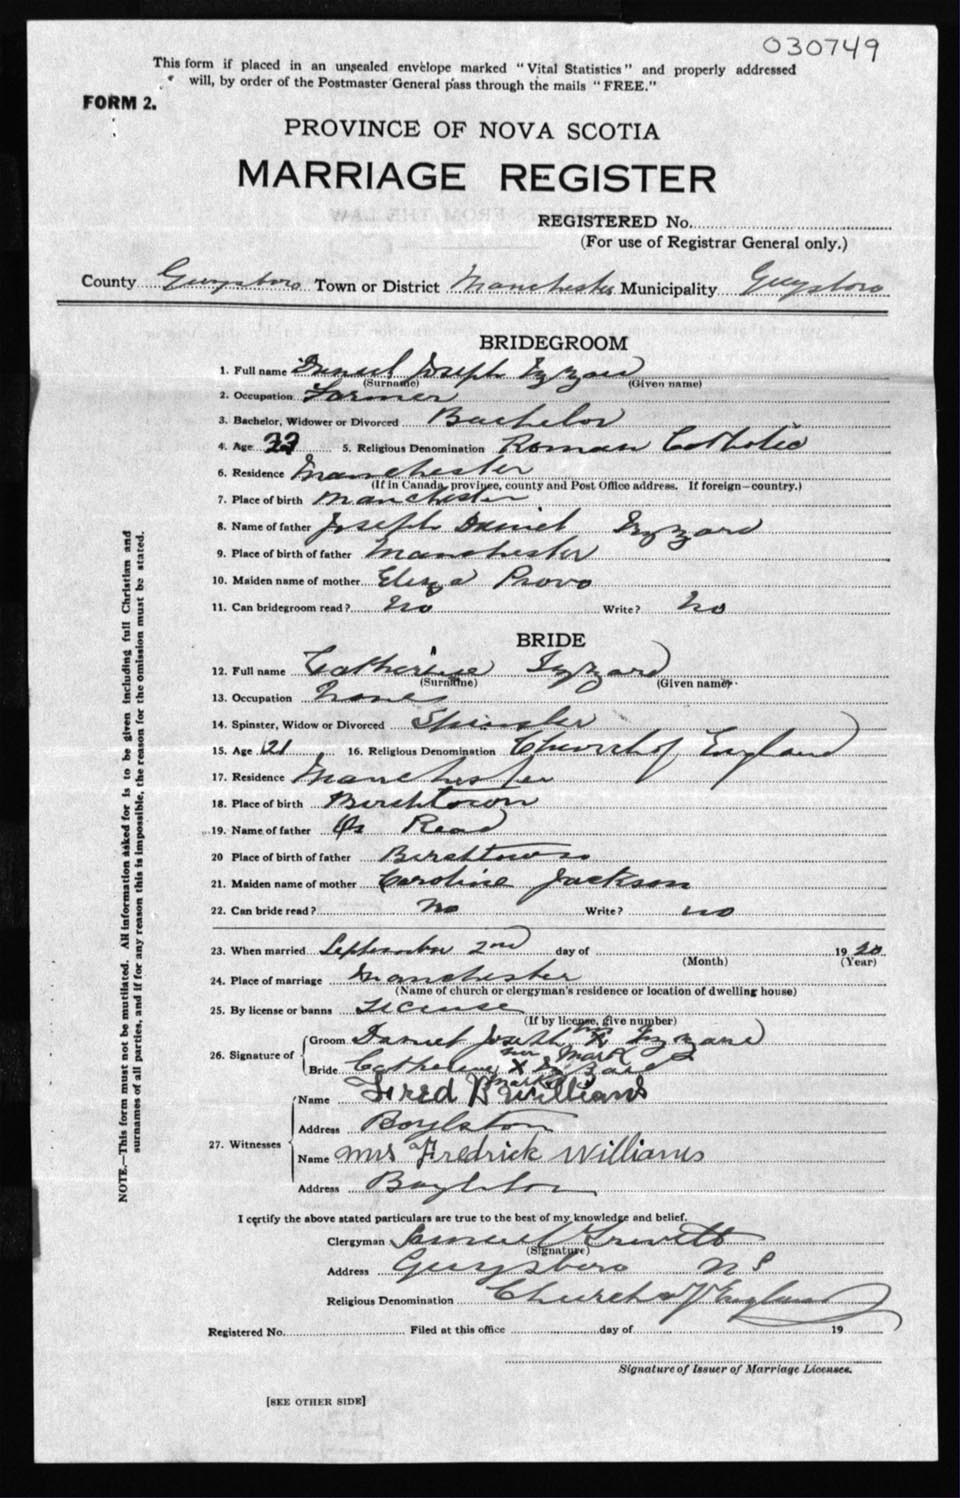 030749
This form if placed in an unsealed envelope marked "Vital Statistics" and properly addressed
will, by order of the Postmaster General pass through the mails "FREE."
FORM 2.
PROVINCE OF NOVA SCOTIA
MARRIAGE REGISTER
REGISTERED No.
(For use of Registrar General only.)
County Guysboro Town or District Manchester Municipality Guysboro
BRIDEGROOM
1. Full name Daniel Joseph Izzard
(Surname) (Given name)
2. Occupation Farmer
3. Bachelor, Widower or Divorced Bachelor
4. Age 5. Religious Denomination Roman Catholic
6. Residence Manchester
(If in Canada, province, county and Post Office address. If foreign—country.)
7. Place of birth Manchester
8. Name of father Joseph Daniel Izzard
9. Place of birth of father Manchester
10. Maiden name of mother Eliza Provo
11. Can bridegroom read? No Write? No
BRIDE
12. Full name Catherine Izzard
(Surname) (Given name)
13. Occupation None
14. Spinster, Widow or Divorced Spinster
15. Age 21 16. Religious Denomination Church of England
17. Residence Manchester
18. Place of birth Birchtown
19. Name of father Read
20 Place of birth of father Birchtown
21. Maiden name of mother Caroline Jackson
22. Can bride read? No Write? no
23. When married September 2nd day of 1920
(Month) (Year)
24. Place of marriage Manchester
(Name of church or clergyman's residence or location of dwelling house)
25. By license or banns License
(If by license, give number)
26. Signature of Groom Daniel Joseph his X mark Izzard
Bride Catherine her X mark Izzard
27. Witnesses
Name Fred B Williams
Address Boylston
Name Mrs Fredrick Williams
Address Boylston
I certify the above stated particulars are true to the best of my knowledge and belief.
Clergyman Samuel Trivett
(Signature)
Address Guysboro N S
Religious Denomination Church of England
Registered No. Filed at this office day of 19
Signature of Issuer of Marriage Licenses.
[SEE OTHER SIDE]
NOTE.—This form must not be mutilated. All information asked for is to be given including full Christian and
surnames of all parties, and if for any reason this is impossible, the reason for the omission must be stated.